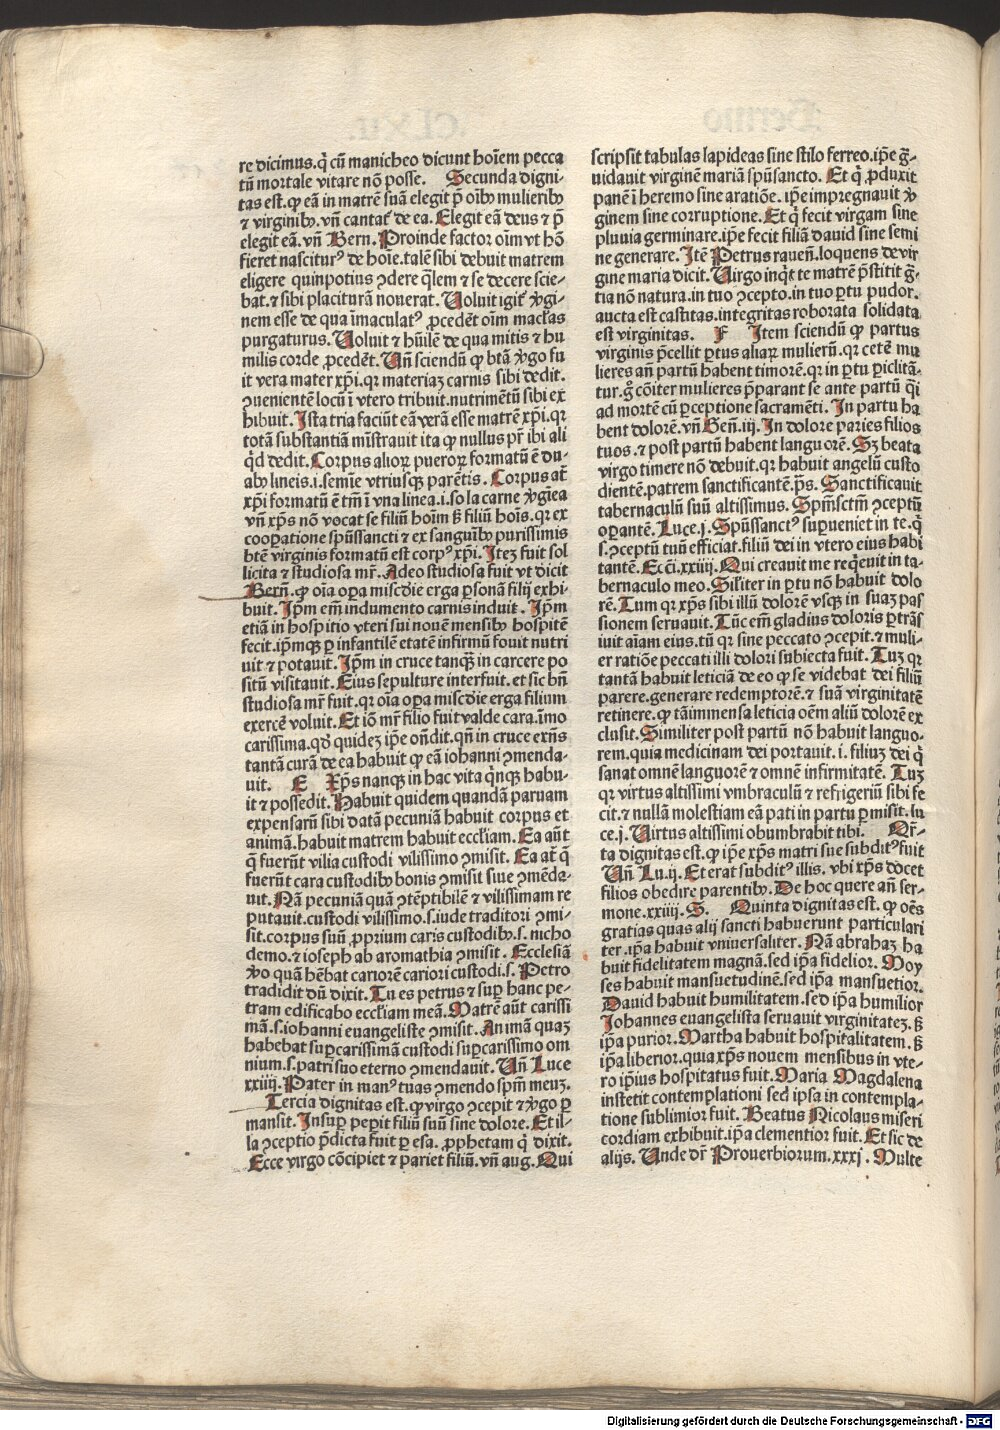 re dicimus.q̇ cū manicheo dicunt hoīem pecca
tū mortale vitare nō posse. Secunda digni-
tas est.ꝙ eā in matrē suā elegit p̄ oībꝰ mulieribꝰ
⁊ virginibꝰ. vn̄ cantat̉ de ea. Elegit eā deus ⁊ p̄
elegit eā. vn̄ Bern. Proinde factor oīm vt hō
fieret nascitur⁹ de hoīe.talē sibi debuit matrem
eligere quinpotius ꝯdere q̄lem ⁊ se decere scie-
bat.⁊ sibi placiturā nouerat. Uoluit igit̉ v̓gi-
nem esse de qua īmaculat⁹ ꝓcedēt oīm macl̓as
purgaturus. Uoluit ⁊ hūilē de qua mitis ⁊ hu
milis corde ꝓcedēt. Un̄ sciendū ꝙ btā v̓go fu
it vera mater xp̄i.qꝛ materiaꝫ carnis sibi dedit.
ꝯuenientē locū ī vtero tribuit.nutrimētū sibi ex
hibuit. Ista tria faciūt eā verā esse matrē xp̄i.qꝛ
totā substantiā mīstrauit ita ꝙ nullus pr̄ ibi ali
q̇d dedit. Corpus alioꝝ pueroꝝ formatū ē du-
abꝰ lineis.i.semīe vtriusqꝫ parētis. Corpus at̄
xp̄i formatū ē tm̄ ī vna linea.i.sola carne v̓gīea
vn̄ xp̄s nō vocat se filiū hoīm ꝫ filiū hoīs.qꝛ ex
cooꝑatione spūssancti ⁊ ex sanguībꝰ purissimis
btē virginis formatū est corp⁹ xp̄i. Iteꝫ fuit sol
licita ⁊ studiosa mr̄. Adeo studiosa fuit vt dicit
Bern̄.ꝙ oīa oꝑa miscdie erga ꝑsonā filij exhi-
buit. Ip̄m em̄ indumento carnis induit. Ip̄m
etiā in hospitio vteri sui nouē mensibꝰ hospitē
fecit.ip̄mqꝫ ꝑ infantilē etatē infirmū fouit nutri
uit ⁊ potauit. Ip̄m in cruce tanqꝫ in carcere po
sitū visitauit. Eius sepulture interfuit.et sic bn̄
studiosa mr̄ fuit.qꝛ oīa oꝑa miscdie erga filium
exercē voluit. Et iō mr̄ filio fuit valde cara.īmo
carissima.qd̓ quideꝫ ip̄e on̄dit.qn̄ in cruce exn̄s
tantā curā de ea habuit ꝙ eā iohanni ꝯmenda-
uit. E Xp̄s nanqꝫ in hac vita q̇nqꝫ habu-
it ⁊ possedit. Habuit quidem quandā paruam
expensarū sibi datā pecuniā habuit corpus et
animā.habuit matrem habuit eccl̓iam. Ea aūt
q̄ fuerūt vilia custodi vilissimo ꝯmisit. Ea at̄ q̄
fuerūt cara custodibꝰ bonis ꝯmisit siue ꝯmēda-
uit. Nā pecuniā quā ꝯtēptibilē ⁊ vilissimam re
putauit.custodi vilissimo.s.iude traditori ꝯmi-
sit.corpus suū ꝓprium caris custodibꝰ.s.nicho
demo.⁊ ioseph ab aromathia ꝯmisit. Ecclesiā
v̓o quā hēbat cariorē cariori custodi.s. Petro
tradidit dū dixit. Tu es petrus ⁊ suꝑ hanc pe-
tram edificabo eccl̓iam meā. Matrē aūt carissi
mā.s.iohanni euangeliste ꝯmisit. Animā quaꝫ
habebat suꝑcarissimā custodi suꝑcarissimo om
nium.s.patri suo eterno ꝯmendauit. Un̄ Luce
xxiiij. Pater in man⁹ tuas ꝯmendo spm̄ meuꝫ.
Tercia dignitas est.ꝙ virgo ꝯcepit ⁊ v̓go ꝑ
mansit. Insuꝑ peꝑit filiū suū sine dolore. Et il-
la ꝯceptio p̄dicta fuit ꝑ esa. ꝓphetam q̇ dixit.
Ecce virgo cōcipiet ⁊ pariet filiū.vn̄ aug. Qui
scripsit tabulas lapideas sine stilo ferreo.ip̄e ḡ-
uidauit virginē mariā spūsancto. Et q̇ ꝓduxit
panē ī heremo sine aratiōe. ip̄e impregnauit v̓
ginem sine corruptione. Et q̇ fecit virgam sine
pluuia germinare.ip̄e fecit filiā dauid sine semi
ne generare. Itē Petrus rauen̄.loquens de vir
gine maria dicit. Uirgo inq̇t te matrē p̄stitit ḡ-
tia nō natura.in tuo ꝯcepto.in tuo ꝑtu pudor.
aucta est castitas.integritas roborata solidata
est virginitas. F Item sciendū ꝙ partus
virginis p̄cellit ꝑtus aliaꝝ mulierū.qꝛ ceteē mu
lieres an̄ partū habent timorē.qꝛ in ꝑtu ꝑiclitā-
tur.g̓ cōiter mulieres p̄parant se ante partū q̄i
ad mortē cū ꝑceptione sacramēti. In partu ha
bent dolorē.vn̄ Gen̄.iij. In dolore paries filios
tuos.⁊ post partū habent languorē. Sꝫ beata
virgo timere nō debuit.qꝛ habuit angelū custo
dientē.patrem sanctificantē.p̄s. Sanctificauit
tabernaculū suū altissimus. Spm̄sctm̄ ꝯceptū
oꝑantē. Luce.j. Spūssanct⁹ suꝑueniet in te.q̇
s.ꝯceptū tuū efficiat.filiū dei in vtero eius habi
tantē. Ecci.xxiiij. Qui creauit me req̇euit in ta-
bernaculo meo. Sil̓iter in ꝑtu nō habuit dolo
rē. Tum qꝛ xp̄s sibi illū dolorē vsqꝫ in suaꝫ pas
sionem seruauit. Tūc em̄ gladius doloris ꝑtrās
iuit aīam eius.tū qꝛ sine peccato ꝯcepit.⁊ muli-
er ratiōe peccati illi dolori subiecta fuit. Tuꝫ qꝛ
tantā habuit leticiā de eo ꝙ se videbat dei filiū
parere.generare redemptorē.⁊ suā virginitatē
retinere.ꝙ tā immensa leticia oēm aliū dolorē ex
clusit. Similiter post partū nō habuit languo-
rem.quia medicinam dei portauit.i.filiuꝫ dei q̇
sanat omnē languorē ⁊ omnē infirmitatē. Tuꝫ
qꝛ virtus altissimi vmbraculū ⁊ refrigeriū sibi fe
cit.⁊ nullā molestiam eā pati in partu ꝑmisit.lu
ce.j. Uirtus altissimi obumbrabit tibi. Qr̄-
ta dignitas est.ꝙ ip̄e xp̄s matri sue subdit⁹ fuit
Un̄ Lu.ij. Et erat subdit⁹ illis. vbi xp̄s docet
filios obedire parentibꝰ. De hoc quere an̄ ser-
mone.xxiiij.S. Quinta dignitas est. ꝙ oēs
gratias quas alij sancti habuerunt particulari
ter.ip̄a habuit vniuersaliter. Nā abrahaꝫ ha
buit fidelitatem magnā.sed ip̄a fidelior. Moy
ses habuit mansuetudinē.sed ip̄a mansuetior.
Dauid habuit humilitatem.sed ip̄a humilior
Iohannes euangelista seruauit virginitateꝫ.ꝫ
ip̄a purior. Martha habuit hospitalitatem.ꝫ
ip̄a liberior.quia xp̄s nouem mensibus in vte-
ro ip̄ius hospitatus fuit. Maria Magdalena
institit contemplationi sed ipsa in contempla-
tione sublimior fuit. Beatus Nicolaus miseri
cordiam exhibuit.ip̄a clementior fuit. Et sic de
alijs. Unde dr̄ Prouerbiorum.xxxj. Multe
Digitalisierung gefördert durch die Deutsche Forschungsgemeinschaft - DFG